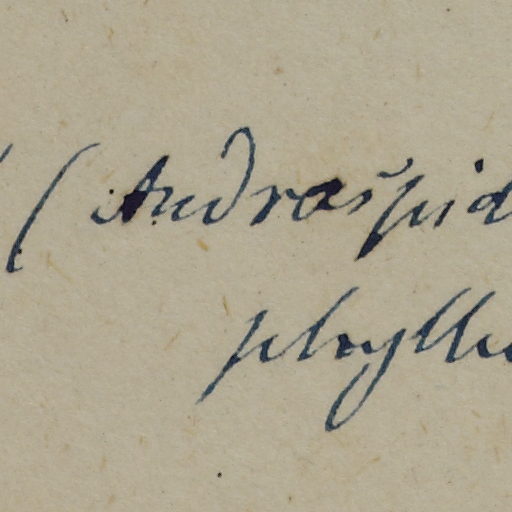 (Audraspid
phyllu